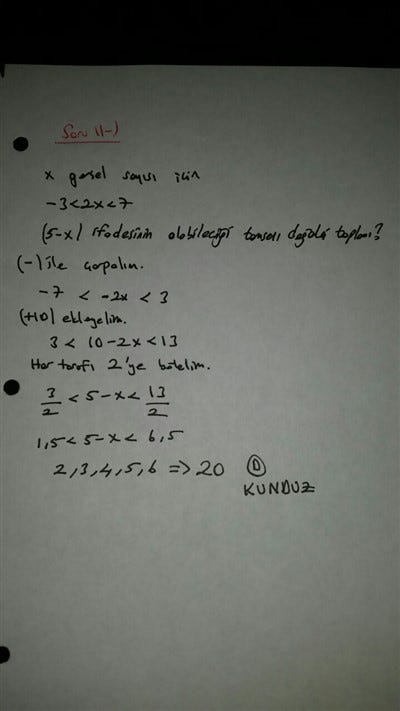 Soru 11-)
x gerçel sayısı için
-3<2x<7
(5-x) ifadesinin alabileceği tamsayı değerleri toplamı?
(-) ile çarpalım.
-7 < -2x < 3
(+10) ekleyelim.
3 < 10-2x < 13
Her tarafı 2'ye bölelim.
3/2 < 5-x < 13/2
1,5 < 5-x < 6,5
2,3,4,5,6 => 20 (D)
KUNDUZ